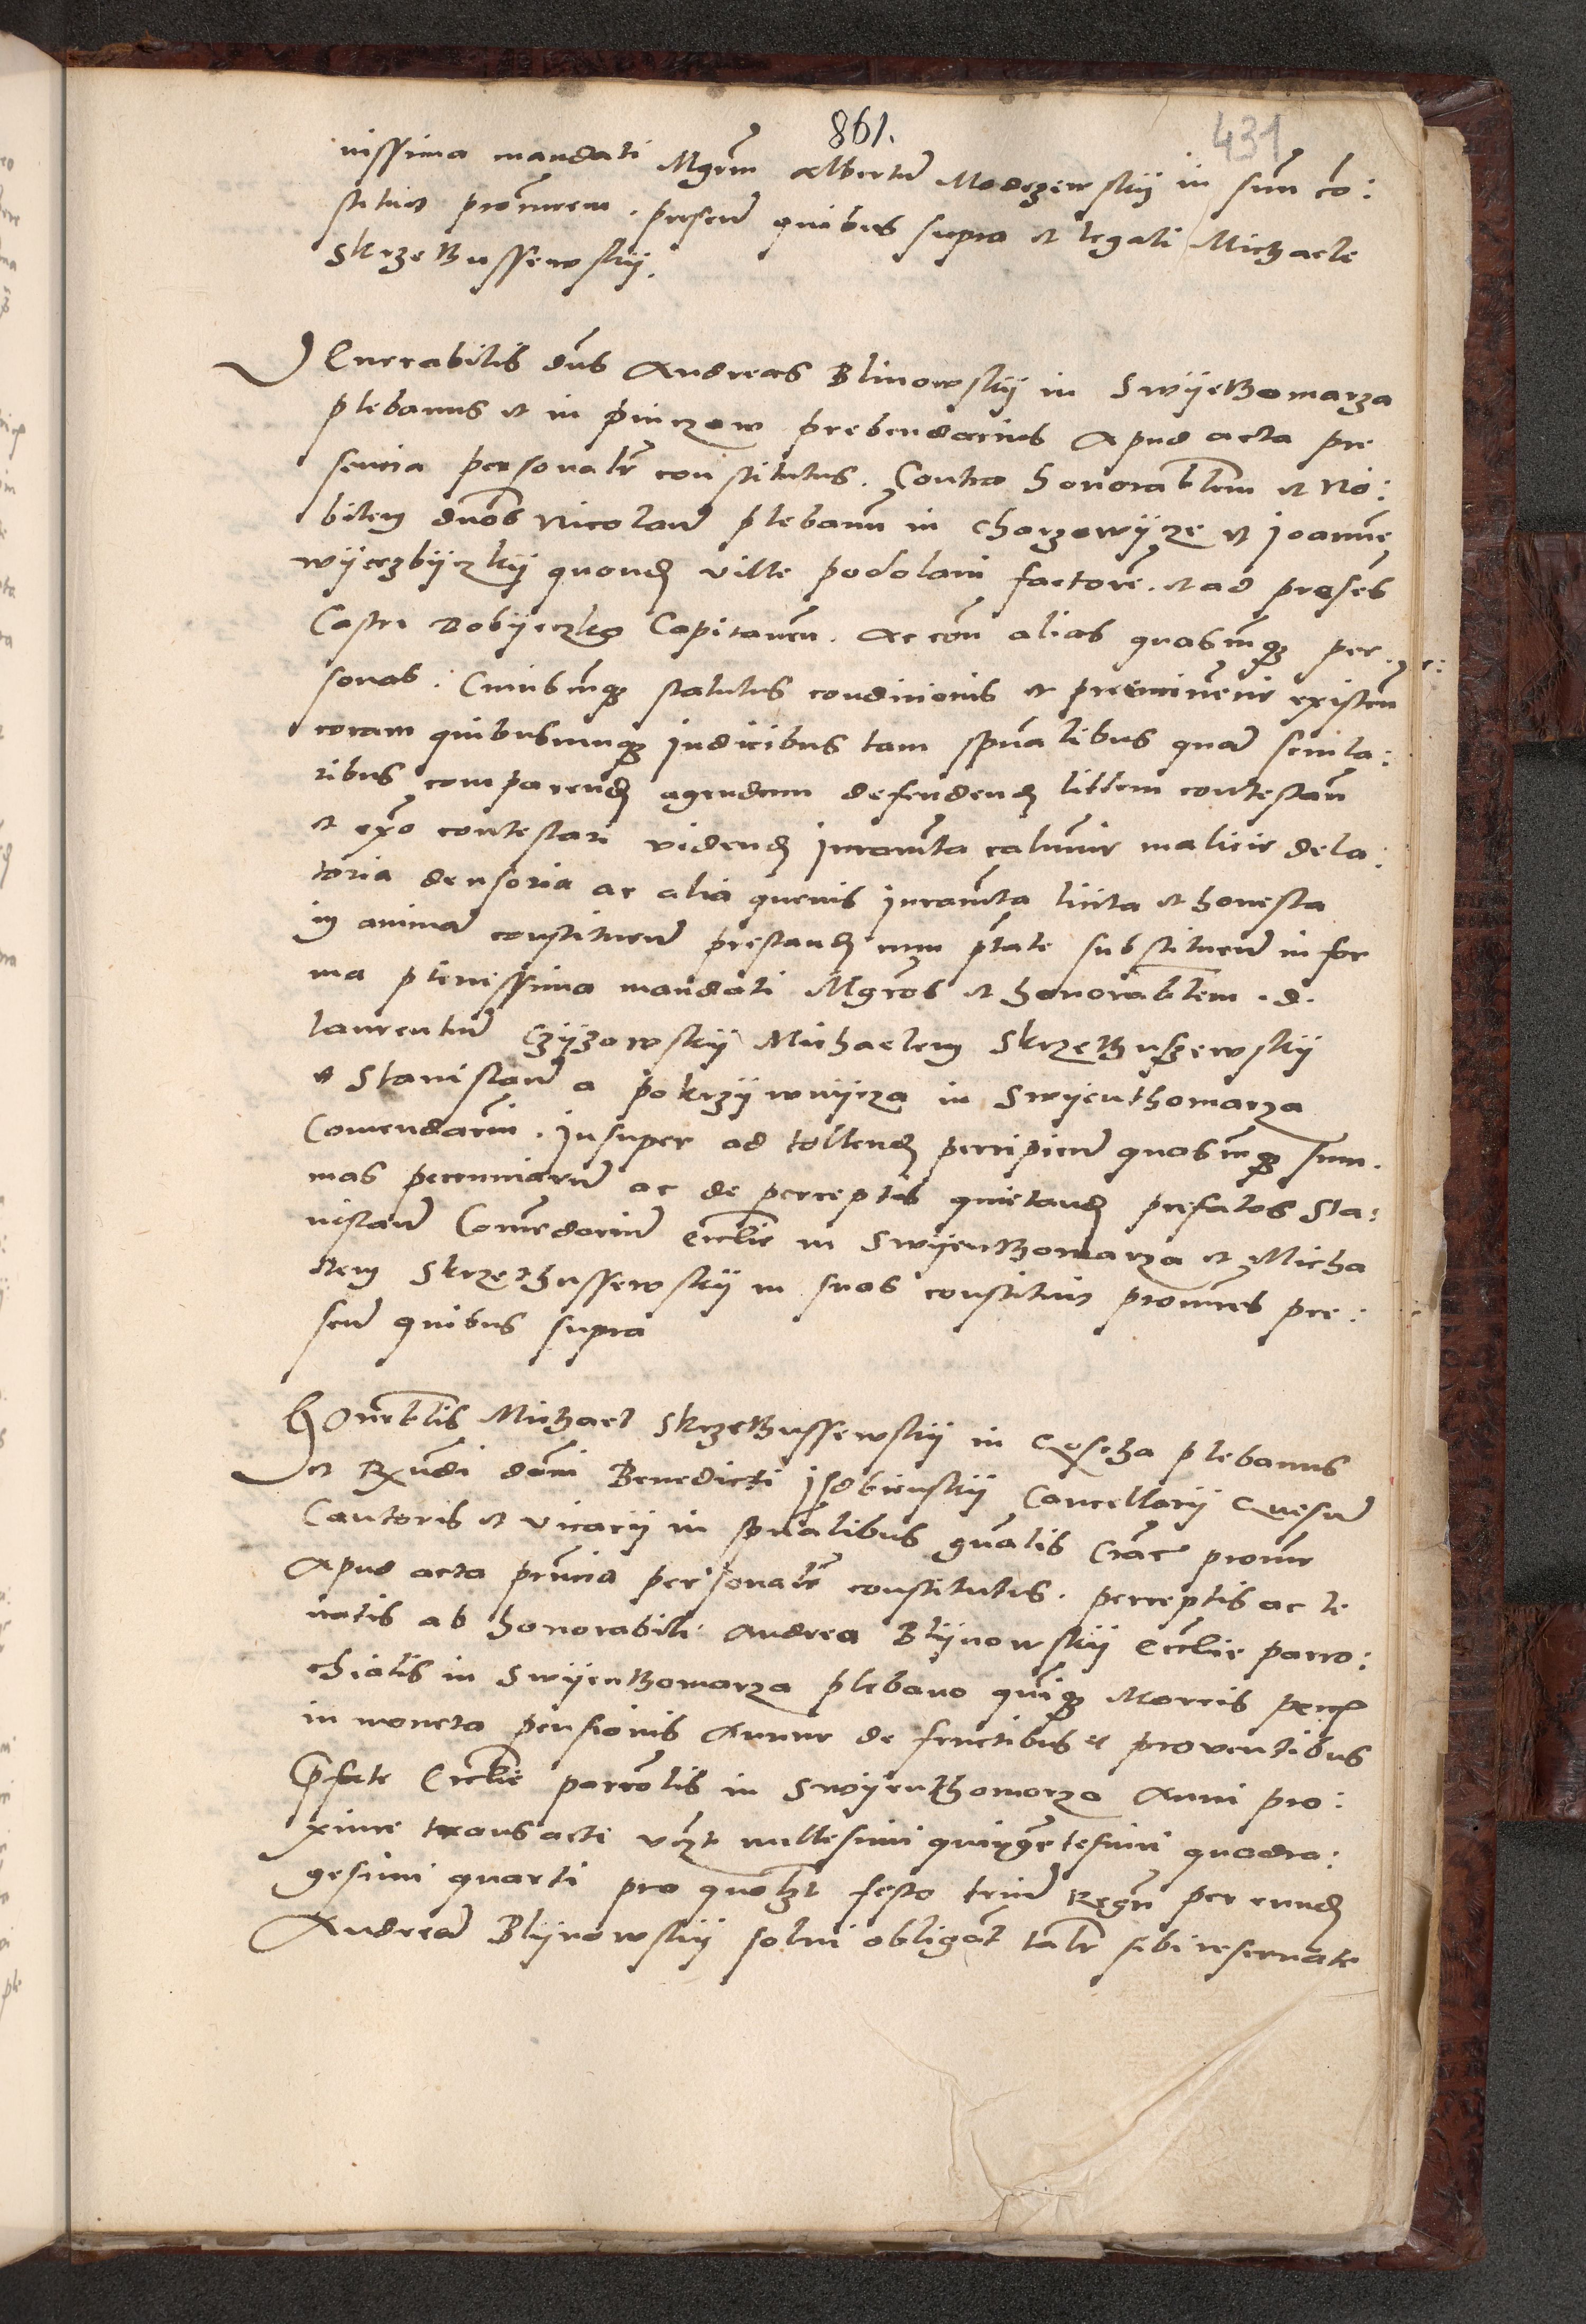 861.
431
nissima mandati Mgrm Albertu Modrzewskij in suu co:
stituit procurem . presen quibus supra et legali Michaele
Skrzethussewskij.
Venerabilis dns Andreas Blinowskij in Swijethomarza
plebanus et in pinczow prebendarius Apud acta pre
sencia personalr constitutus . Contra honorablem et No:
bilem dnos Nicolau plebanu in chorzowijze et Joanne
wijerzbijczkij quond ville podolani factore . et ad preses
Castri Dobijeczko Capitaneu . Ac con alias quascuqz per:
sonas . Cuiuscuqz status condicionis et preeminenie existen
coram quibuscunqz Judicibus tam spualibus qua secula:
ribus comparend agendum defendend littem contestan
et ex contestari videnz Juramta calumie malicie dela:
toria densoria ac alia quevis Juramta licita et honesta
in anima constituen prestand cum ptate substituen in for
ma plenissima mandati Mgros et honorablem . d .
laurentiu Czijzowskij Michaelem Skrzethuszewskij
et Stanislau a pokrzijwnijcza in Swijenthomarza
Comendariu . Insuper ad tollend percipien quascuqz sum .
mas pecuniaru ac de perceptis quietand prefatos Sta:
nislau Comedariu Ecclie in Swijenthomarza et Micha
elem Skrzethussewskij in suos constituit procures pre:
sen quibus supra
Honorblis Michael Skrzethussewskij in plebanus
et Rxndi dmi Benedicti Jsdbienskij Cancellarij Gnesn
Cantoris et vicarij in spualibus gnalis Crac procur
Apud acta pncia personalr constitutus . perceptis ac le
vatis ab honorabili Andrea Blijnowskij Ecclie parro:
chialis in Swijenthomarza plebano quiqz Marcis pecu
in moneta pensionis Annue de fructibus et proventibus
prefate Ecclie parrolis in Swijenthomarza Anni pro:
xime transacti vczt millesimi quigetesimi quadra:
gesimi quarti pro quolzt festo triu Regu per eund
Andrea Blijnowskij solvi obligat talr sibi reservate